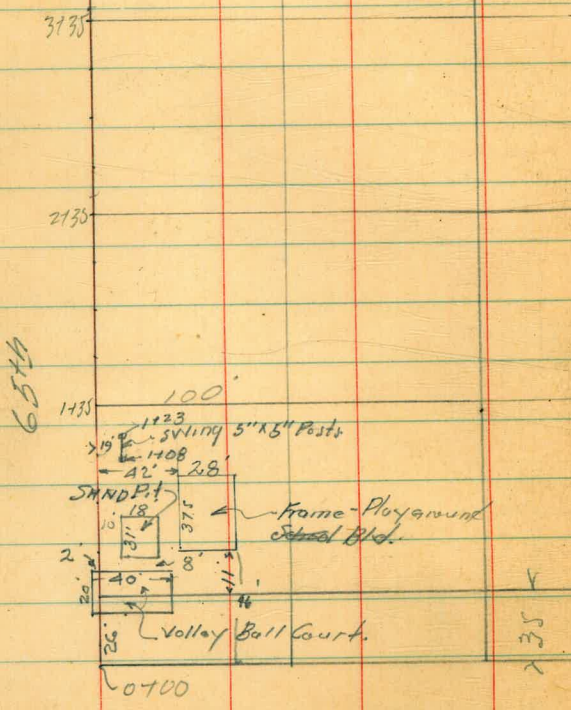 3+35
2+35
65th
1+35
100
1+23
Swing 5"x5" Posts
19'
1+08
42' 28'
SAND Pit
18
31'
37.5
Frame-Playground
School Bld.
2'
8'
40'
20'
11'
46'
Volley Ball Court.
26'
35
0+00